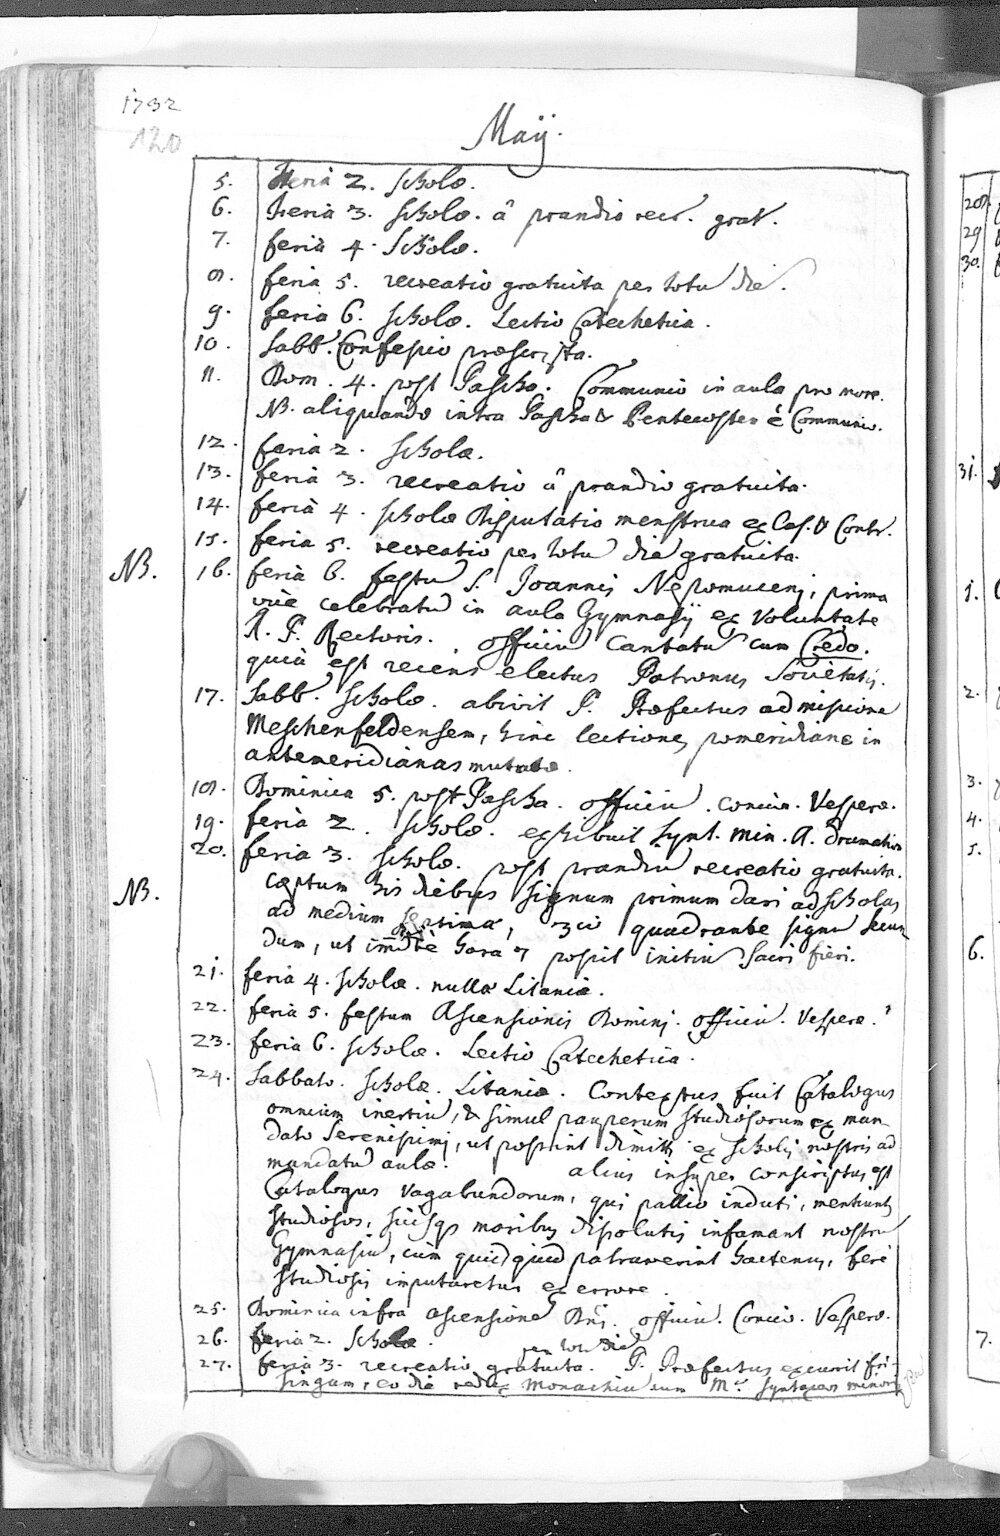 1732
120
Maÿ.
5. Feria 2. scholæ.
6. Feria 3. scholæ. â prandio recr. grat.
7. feria 4. Scholæ.
8. feria 5. recreatio gratuita per totu die.
9. feria 6. scholæ. Lectio Catechetica.
10. Sabb. Confessio præscripta.
11. Dom. 4. post Pascha. Communio in aula pro more.
NB. aliquando intra Pascha & Pentecosten è Communio.
12. feria 2. scholæ.
13. feria 3. recreatio â prandio gratuita.
14. feria 4. scholæ Disputatio menstrua ex Cas. & Contr.
15. feria 5. recreatio per totu die gratuita.
NB. 16. feria 6. festu S. Joannis Nepomuceni, prima
vice celebratu in aula Gymnasÿ ex voluntate
R. P. Rectoris. officiu cantatu cum Credo.
quià est recens electus Patronus Societatis.
17. Sabb. scholæ. abivit P. Præfectus ad missione
Meschenfeldensem, hinc lectiones pomeridianæ in
antemeridianas mutatæ.
18. Dominica 5. post Pascha. officiu. concio. Vesperæ.
19. feria 2. scholæ. exhibuit Synt. min. A. Dramation
20. feria 3. scholæ. post prandiu recreatio gratuita.
NB. cæptum his diebus signum primum dari ad scholas
ad medium septimæ, 3cio quadrante signu secun
dum, ut im̄dte hora 7 possit initiu sacri fieri.
21. feria 4. scholæ. nullæ Litaniæ.
22. feria 5. festum Ascensionis Domini. officiu. Vesperæ.
23. feria 6. scholæ. Lectio Catechetica.
24. Sabbato. scholæ. Litaniæ. Contextus fuit Catalogus
omnium inertiu, & simul pauperum studiosorum ex man
dato Serenissimi, ut possint dimitti ex scholis nostris ad
mandatu aulæ. alius insuper conscriptus est
Catalogus vagabundorum, qui pallio induti, mentiunt
studiosos, suisqs moribus dissolutis infamant nostru
Gymnasiu, cùm quidquid patraverint hactenus, ferè
studiosis imputaretur ex errore.
25. Dominica infra ascensione Dni. officiu. Concio. Vesperæ.
26. feria 2. Scholæ.
per totu die
27. feria 3. recreatio gratuita. P. Præfectus excurrit fri-
singam, eo die redux Monachiu cum Mro. syntaxeos minoris
28.
29
30.
31.
1.
2.
3.
4.
5.
6.
7.